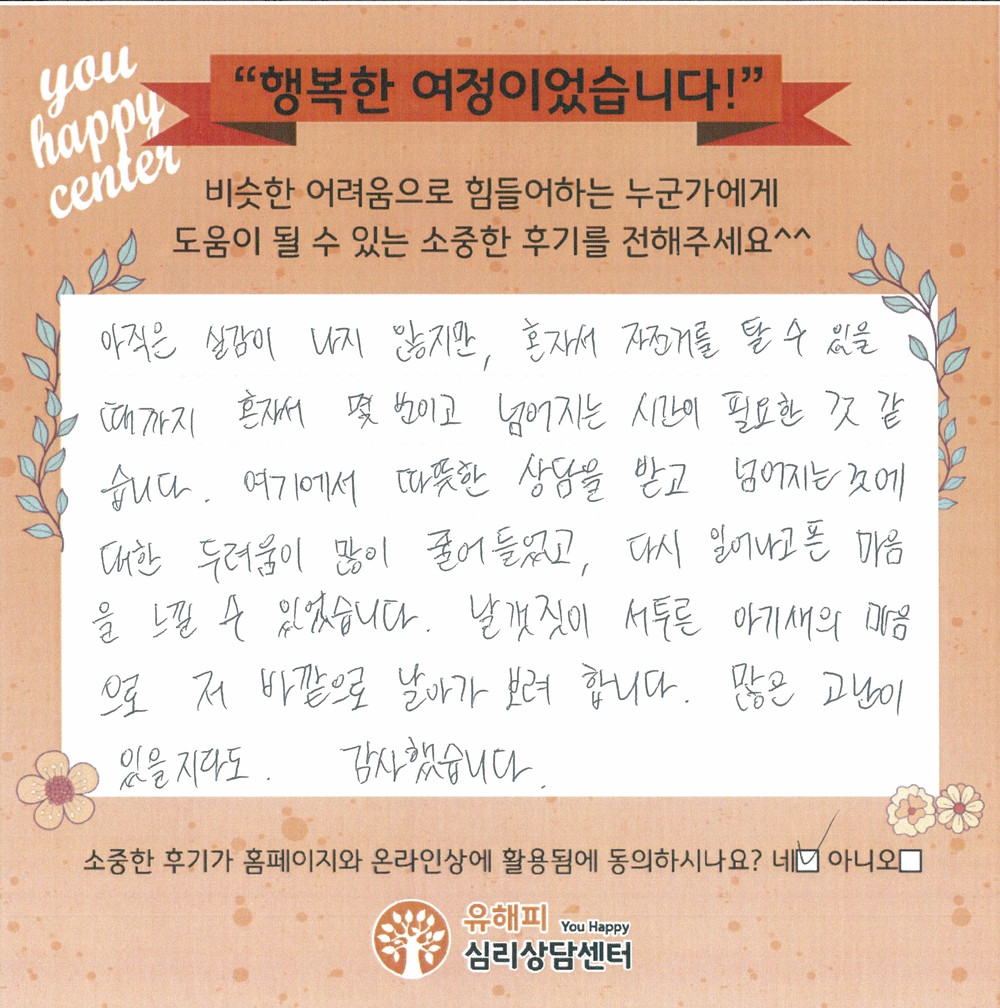 you
happy
center
“행복한 여정이었습니다!”
비슷한 어려움으로 힘들어하는 누군가에게
도움이 될 수 있는 소중한 후기를 전해주세요^^
아직은 실감이 나지 않지만, 혼자서 자전거를 탈 수 있을
때까지 혼자서 몇 번이고 넘어지는 시간이 필요한 것 같
습니다. 여기에서 따뜻한 상담을 받고 넘어지는 것에
대한 두려움이 많이 줄어들었고, 다시 일어나고픈 마음
을 느낄 수 있었습니다. 날갯짓이 서투른 아기새의 마음
으로 저 바깥으로 날아가 보려 합니다. 많은 고난이
있을지라도. 감사했습니다.
소중한 후기가 홈페이지와 온라인상에 활용됨에 동의하시나요? 네 아니오
유해피 You Happy
심리상담센터